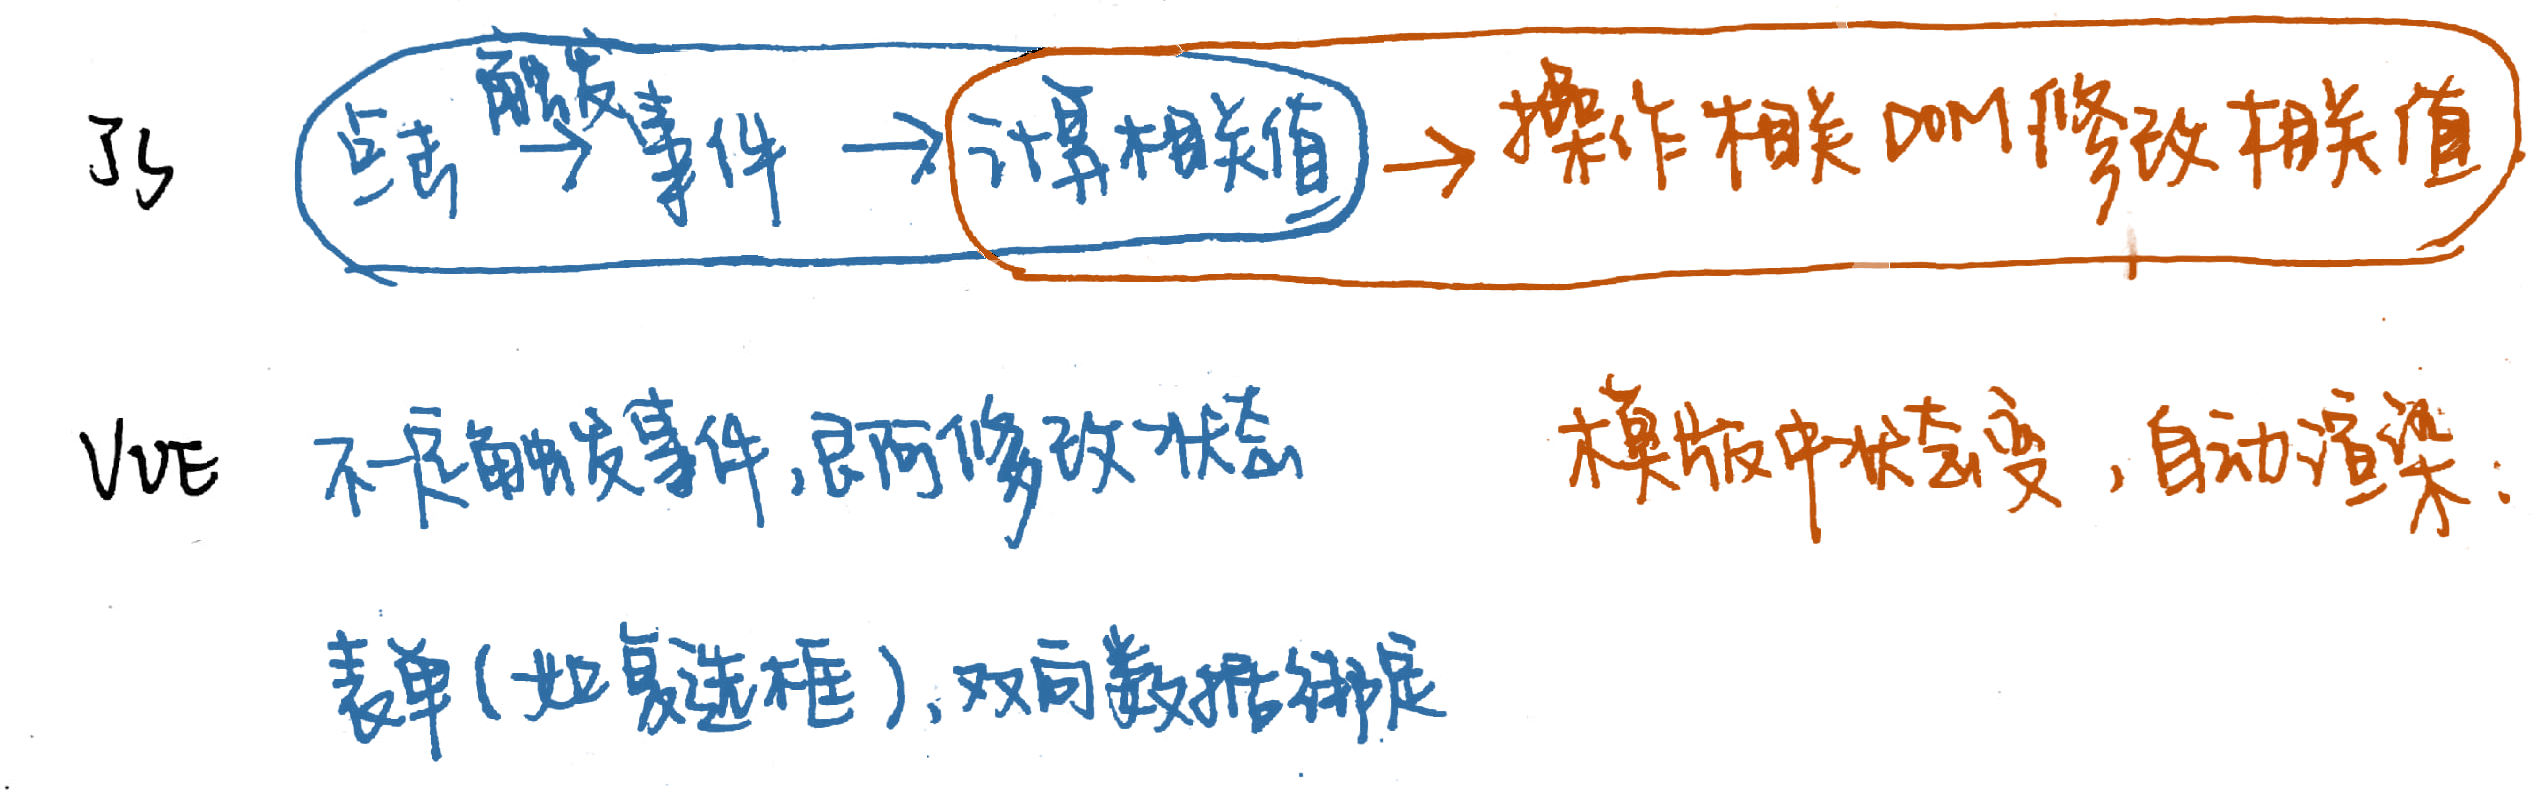 JS 点击 触发→ 事件 → 计算相关值 → 操作相关DOM修改相关值
VUE 不一定触发事件,即可修改状态 模版中状态变,自动渲染:
表单(如复选框),双向数据绑定